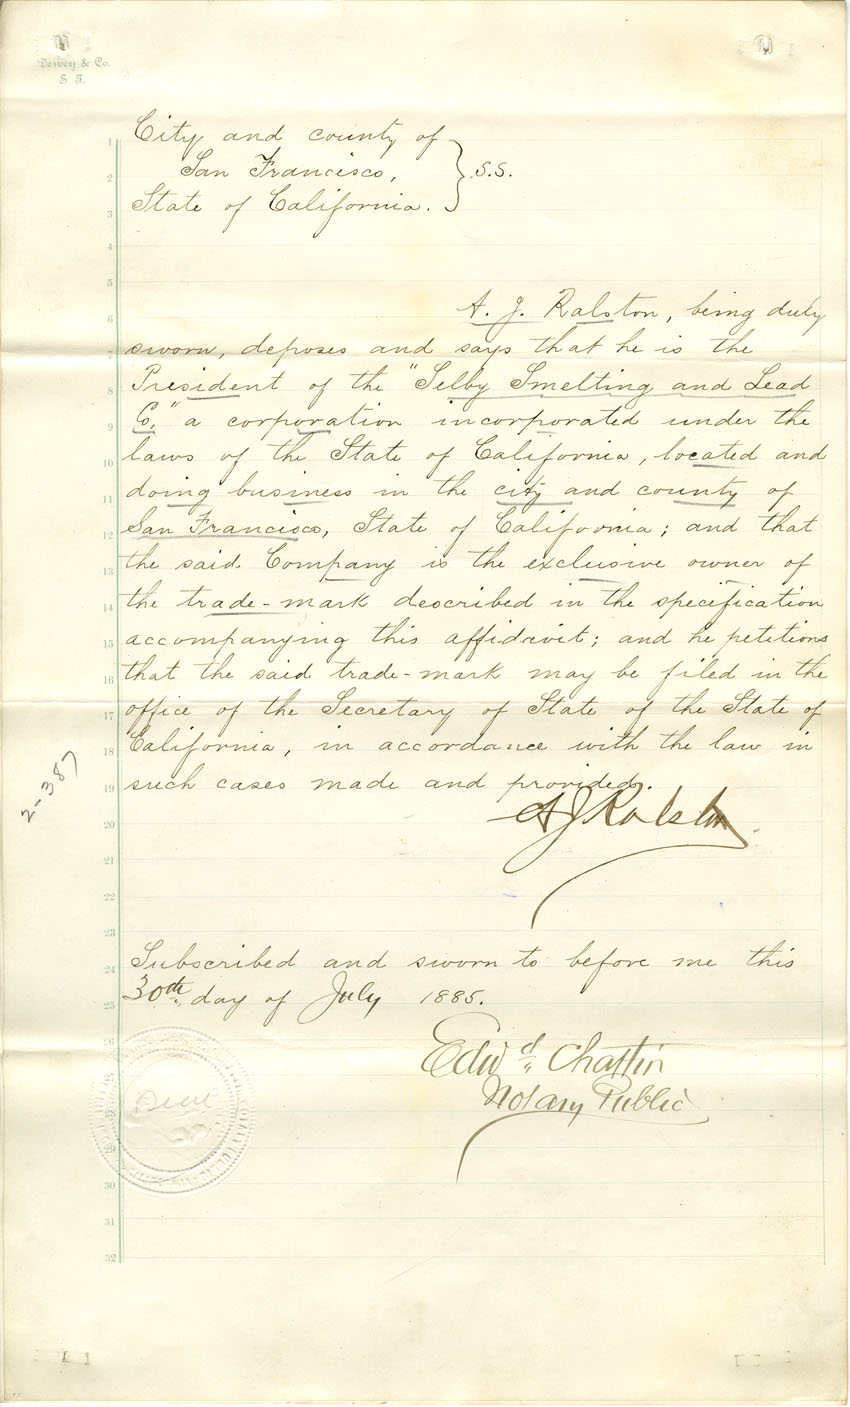 Dewey & Co.
S F.
City and county of
San Francisco,
State of California. } s.s.
A. J. Ralston, being duly
sworn, deposes and says that he is the
President of the "Selby Smelting and Lead
Co," a corporation incorporated under the
laws of the State of California, located and
doing business in the city and county of
San Francisco, State of California; and that
the said Company is the exclusive owner of
the trade-mark described in the specification
accompanying this affidavit; and he petitions
that the said trade-mark may be filed in the
office of the Secretary of State of the State of
California, in accordance with the law in
such cases made and provided.
A J Ralston
2-387
Subscribed and sworn to before me this
30th day of July 1885.
Edwd Chattin
Notary Public
Seal
1
2
3
4
5
6
7
8
9
10
11
12
13
14
15
16
17
18
19
20
21
22
23
24
25
26
27
28
29
30
31
32